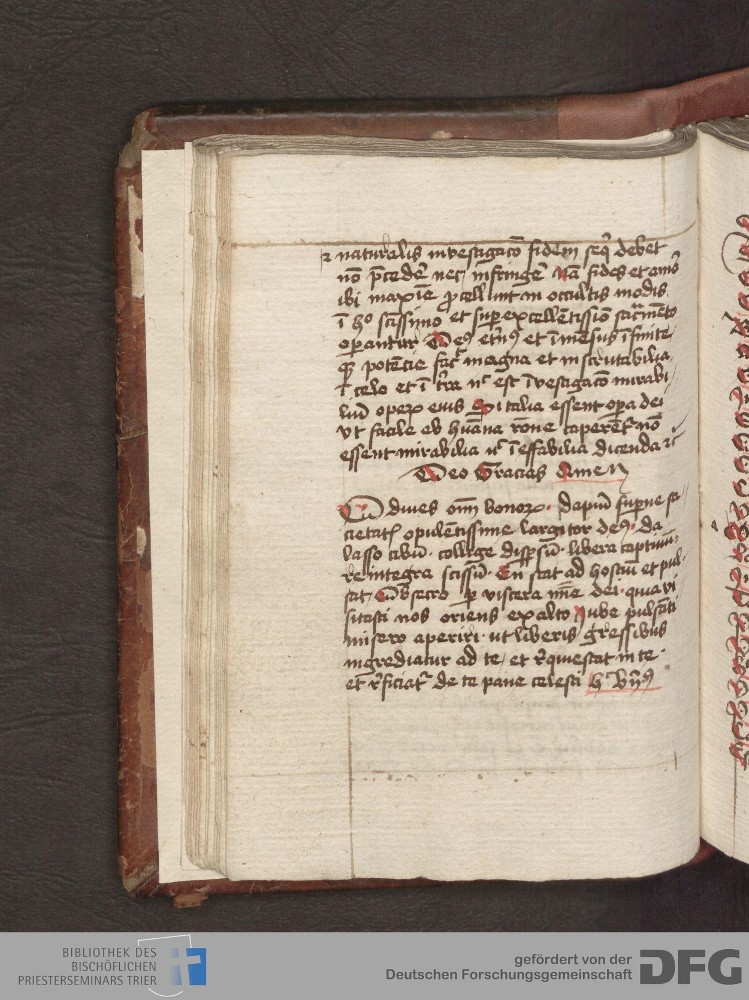 ⁊ naturalis inuestigacō fidem seq̄ debet
nō p̄cedē nec infringē Nā fides et amō
ibi maxīe p̄cellunt in occultis modis
ī hº sc̄issimo et superexcellentissīo sacr̄mēto
operantur Deꝰ et̄nꝰ et īmēsus īfinite
qꝫ potēcie fac̄ magna et inscrutabilia
ī celo et ī t̄ra nͨ est īvestigacō mirabi
liū operꝝ eius Si talia essent opa dei
vt facile ab huāna rōne caperēt᷑ nō
essent mirabilia nͨ īeffabilia dicenda ⁊c̄
Deo Gracias Amen
O diues om̄ bonoꝝ dapiū superne sa
cietatꝭ opulētissime largitor deꝰ da
lasso cibū collige dispsū libera captiuū
reintegra scissū En stat ad hostiū et pul
sat Obsecro p viscera mīe dei quia vi
sitasti nos oriens ex alto iube pulsāti
misero aperiri ut liberis gressibus
ingrediatur ad te et r̄quiescat in te
et r̄ficiat᷑ de te pane celesti
BIBLIOTHEK DES
BISCHÖFLICHEN
PRIESTERSEMINARS TRIER
gefördert von der
Deutschen Forschungsgemeinschaft
DFG